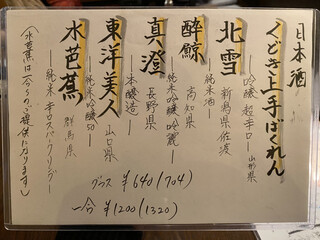 日本酒
くどき上手ばくれん
吟醸 超辛口 山形県
北雪
純米酒 新潟県佐渡
酔鯨
純米吟醸 吟麗 高知県
真澄
本醸造 長野県
東洋美人
純米吟醸50 山口県
水芭蕉
純米 辛口スパークリング 群馬県
(水芭蕉は一合のみご提供になります)
グラス ¥640(704)
一合 ¥1200(1320)